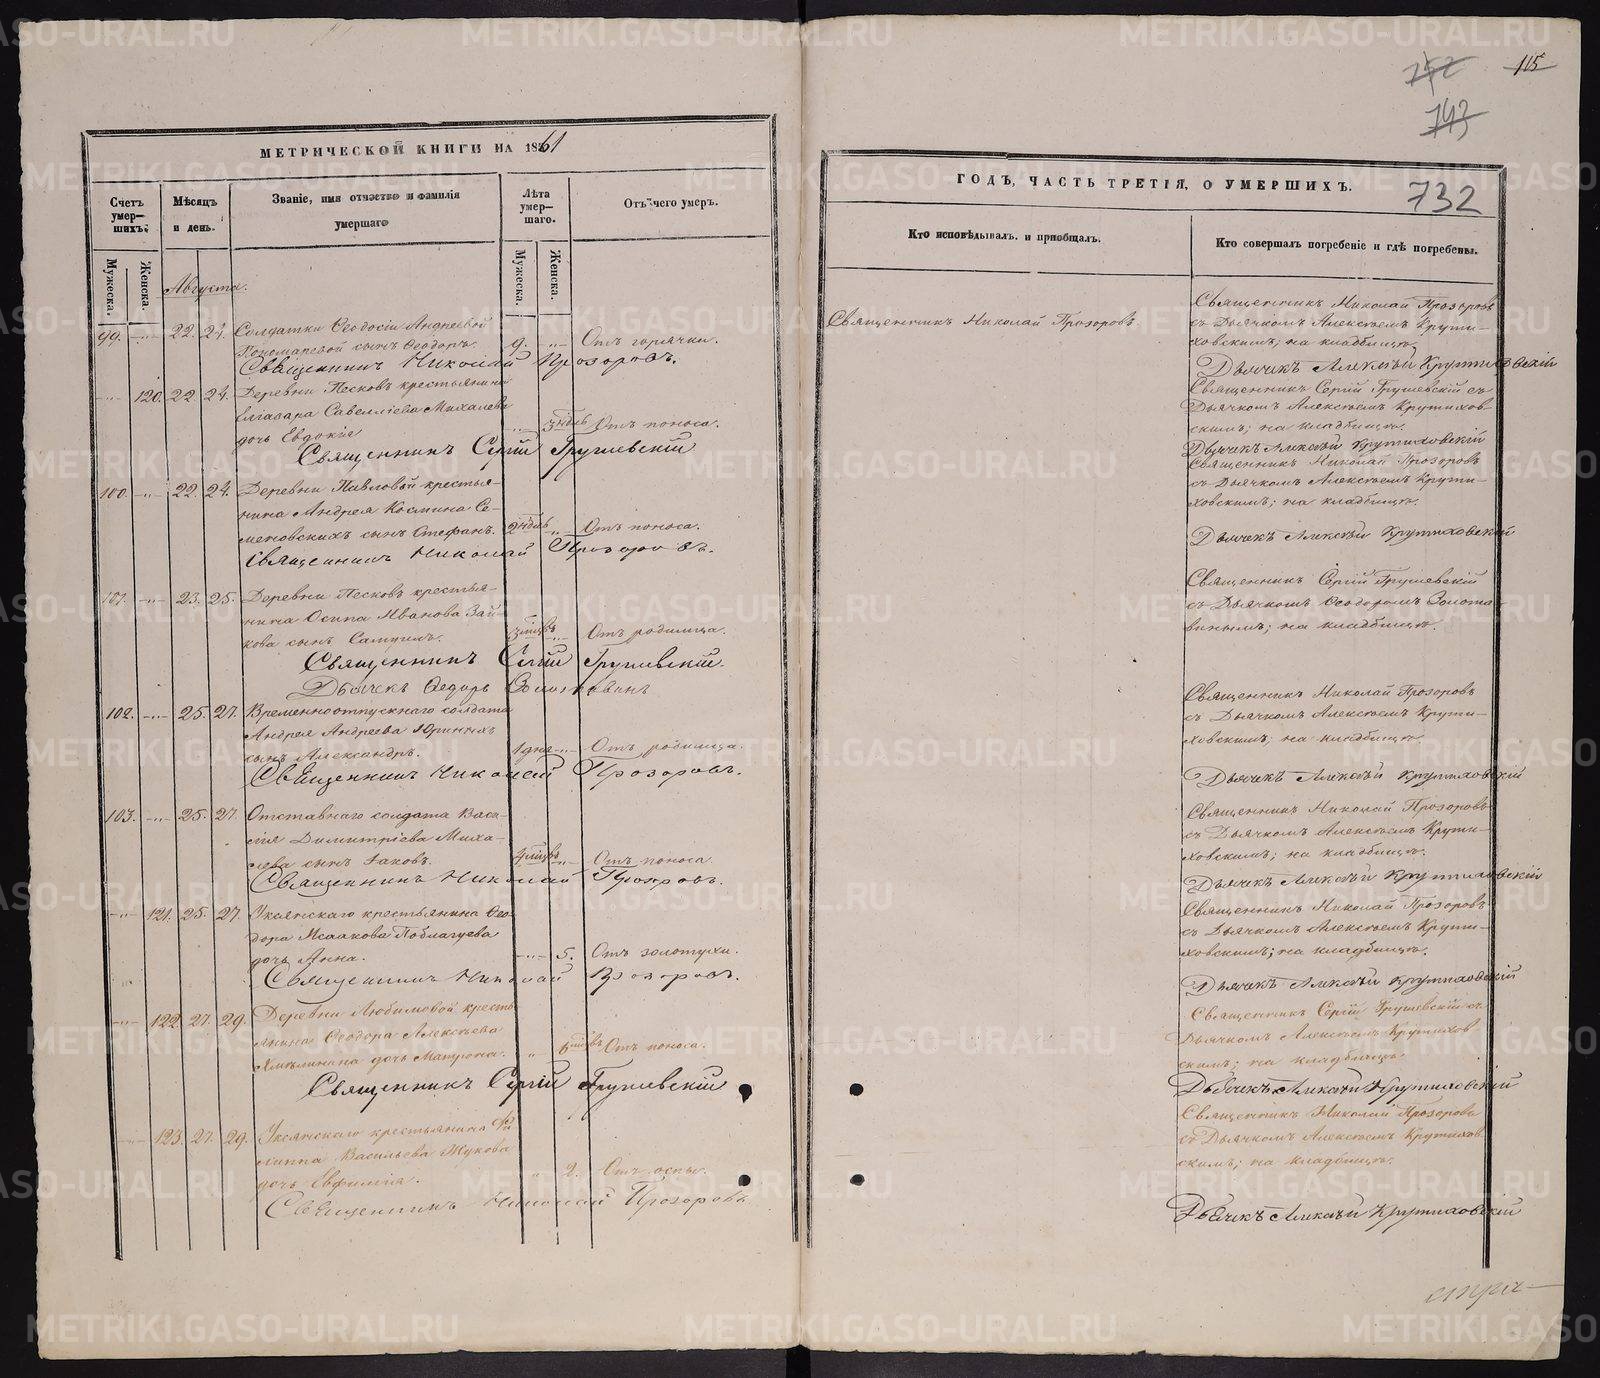 МЕТРИЧЕСКОЙ КНИГИ НА 1861
Счетъ умер— шихъ.
Мѣсяцъ и день.
Званіе, имя отчэство и фамилія умершаго
Лѣта умер— шаго.
Отъ чего умеръ.
Мужеска.
Женска.
Мужеска.
Женска.
Августа.
99. —„— 22. 24. Солдатки Ѳеодосіи Андреевой
Пономаревой сынъ Ѳеодоръ. 9. —„— Отъ горячки.
Священникъ Николай Прозоровъ.
—„— 120. 22 24. Деревни Песковъ крестьянина
Елиазара Савелліева Михалева
дочь Евдокія „ 3 ндѣль Отъ поноса.
Священникъ Сергій Грушевскій
100. —„— 22. 24. Деревни Павловой крестья—
нина Андрея Космина Се—
меновскихъ сынъ Стефанъ. 2 ндѣль „ Отъ поноса.
Священникъ Николай Прозоровъ.
101. —„— 23. 25. Деревни Песковъ крестья—
нина Осипа Иванова Зай—
кова сынъ Самуилъ. 3 мцвъ —„— Отъ родимца.
Священникъ Сергій Грушевскій.
Дьячекъ Ѳедоръ Золотавинъ
102. —„— 25. 27. Временноотпускнаго солдата
Андрея Андреева Юринныхъ
сынъ Александръ. 1 дня —„— Отъ родимца.
Священникъ Николай Прозоровъ.
103. —„— 25. 27. Отставнаго солдата Васи—
лія Димитріева Миха—
лева сынъ Іаковъ. 4 мцвъ —„— Отъ поноса.
Священникъ Николай Прозоровъ.
—„— 121. 25. 27. Уксянскаго крестьянина Ѳео—
дора Исаакова Поблагуева
дочь Анна. —„— 5. Отъ золотухи.
Священникъ Николай Прозоровъ.
—„— 122. 27. 29. Деревни Любимовой кресть—
янина Ѳеодора Алексѣева
Хмѣлинина дочь Матрона. „ 6 мцвъ Отъ поноса.
Священникъ Сергій Грушевскій
—„— 123. 27. 29. Уксянскаго крестьянина Фи
липпа Васильева Жукова
дочь Евфимія. „ 2. Отъ оспы.
Священникъ Николай Прозоровъ
115
752
743
732
ГОДЪ, ЧАСТЬ ТРЕТІЯ, О УМЕРШИХЪ.
Кто исповѣдывалъ. и пріобщалъ.
Кто совершалъ погребеніе и гдѣ погребены.
Священникъ Николай Прозоровъ.
Священникъ Николай Прозоровъ
съ Дьячкомъ Алексѣемъ Крути—
ховскимъ; на кладбищѣ.
Дьячекъ Алексѣй Крутиховскій
Священникъ Сергій Грушевскій съ
Дьячкомъ Алексѣемъ Крутихов—
скимъ; на кладбищѣ.
Дьячекъ Алексѣй Крутиховскій
Священникъ Николай Прозоровъ
съ Дьячкомъ Алексѣемъ Крути—
ховскимъ; на кладбищѣ.
Дьячекъ Алексѣй Крутиховскій
Священникъ Сергій Грушевскій
съ Дьячкомъ Ѳеодоромъ Золота—
винымъ; на кладбищѣ.
Священникъ Николай Прозоровъ
съ Дьячкомъ Алексѣемъ Крути—
ховскимъ; на кладбищѣ.
Дьячекъ Алексѣй Крутиховскій
Священникъ Николай Прозоровъ
съ Дьячкомъ Алексѣемъ Крути—
ховскимъ; на кладбищѣ.
Дьячекъ Алексѣй Крутиховскій
Священникъ Николай Прозоровъ
съ Дьячкомъ Алексѣемъ Крути—
ховскимъ; на кладбищѣ.
Дьячекъ Алексѣй Крутиховскій
Священникъ Сергій Грушевскій съ
Дьячкомъ Алексѣемъ Крутихов
скимъ; на кладбищѣ.
Дьячекъ Алексѣй Крутиховскій
Священникъ Николай Прозоровъ
съ Дьячкомъ Алексѣемъ Крутихов
скимъ; на кладбищѣ.
Дьячекъ Алексѣй Крутиховскій
METRIKI.GASO-URAL.RU